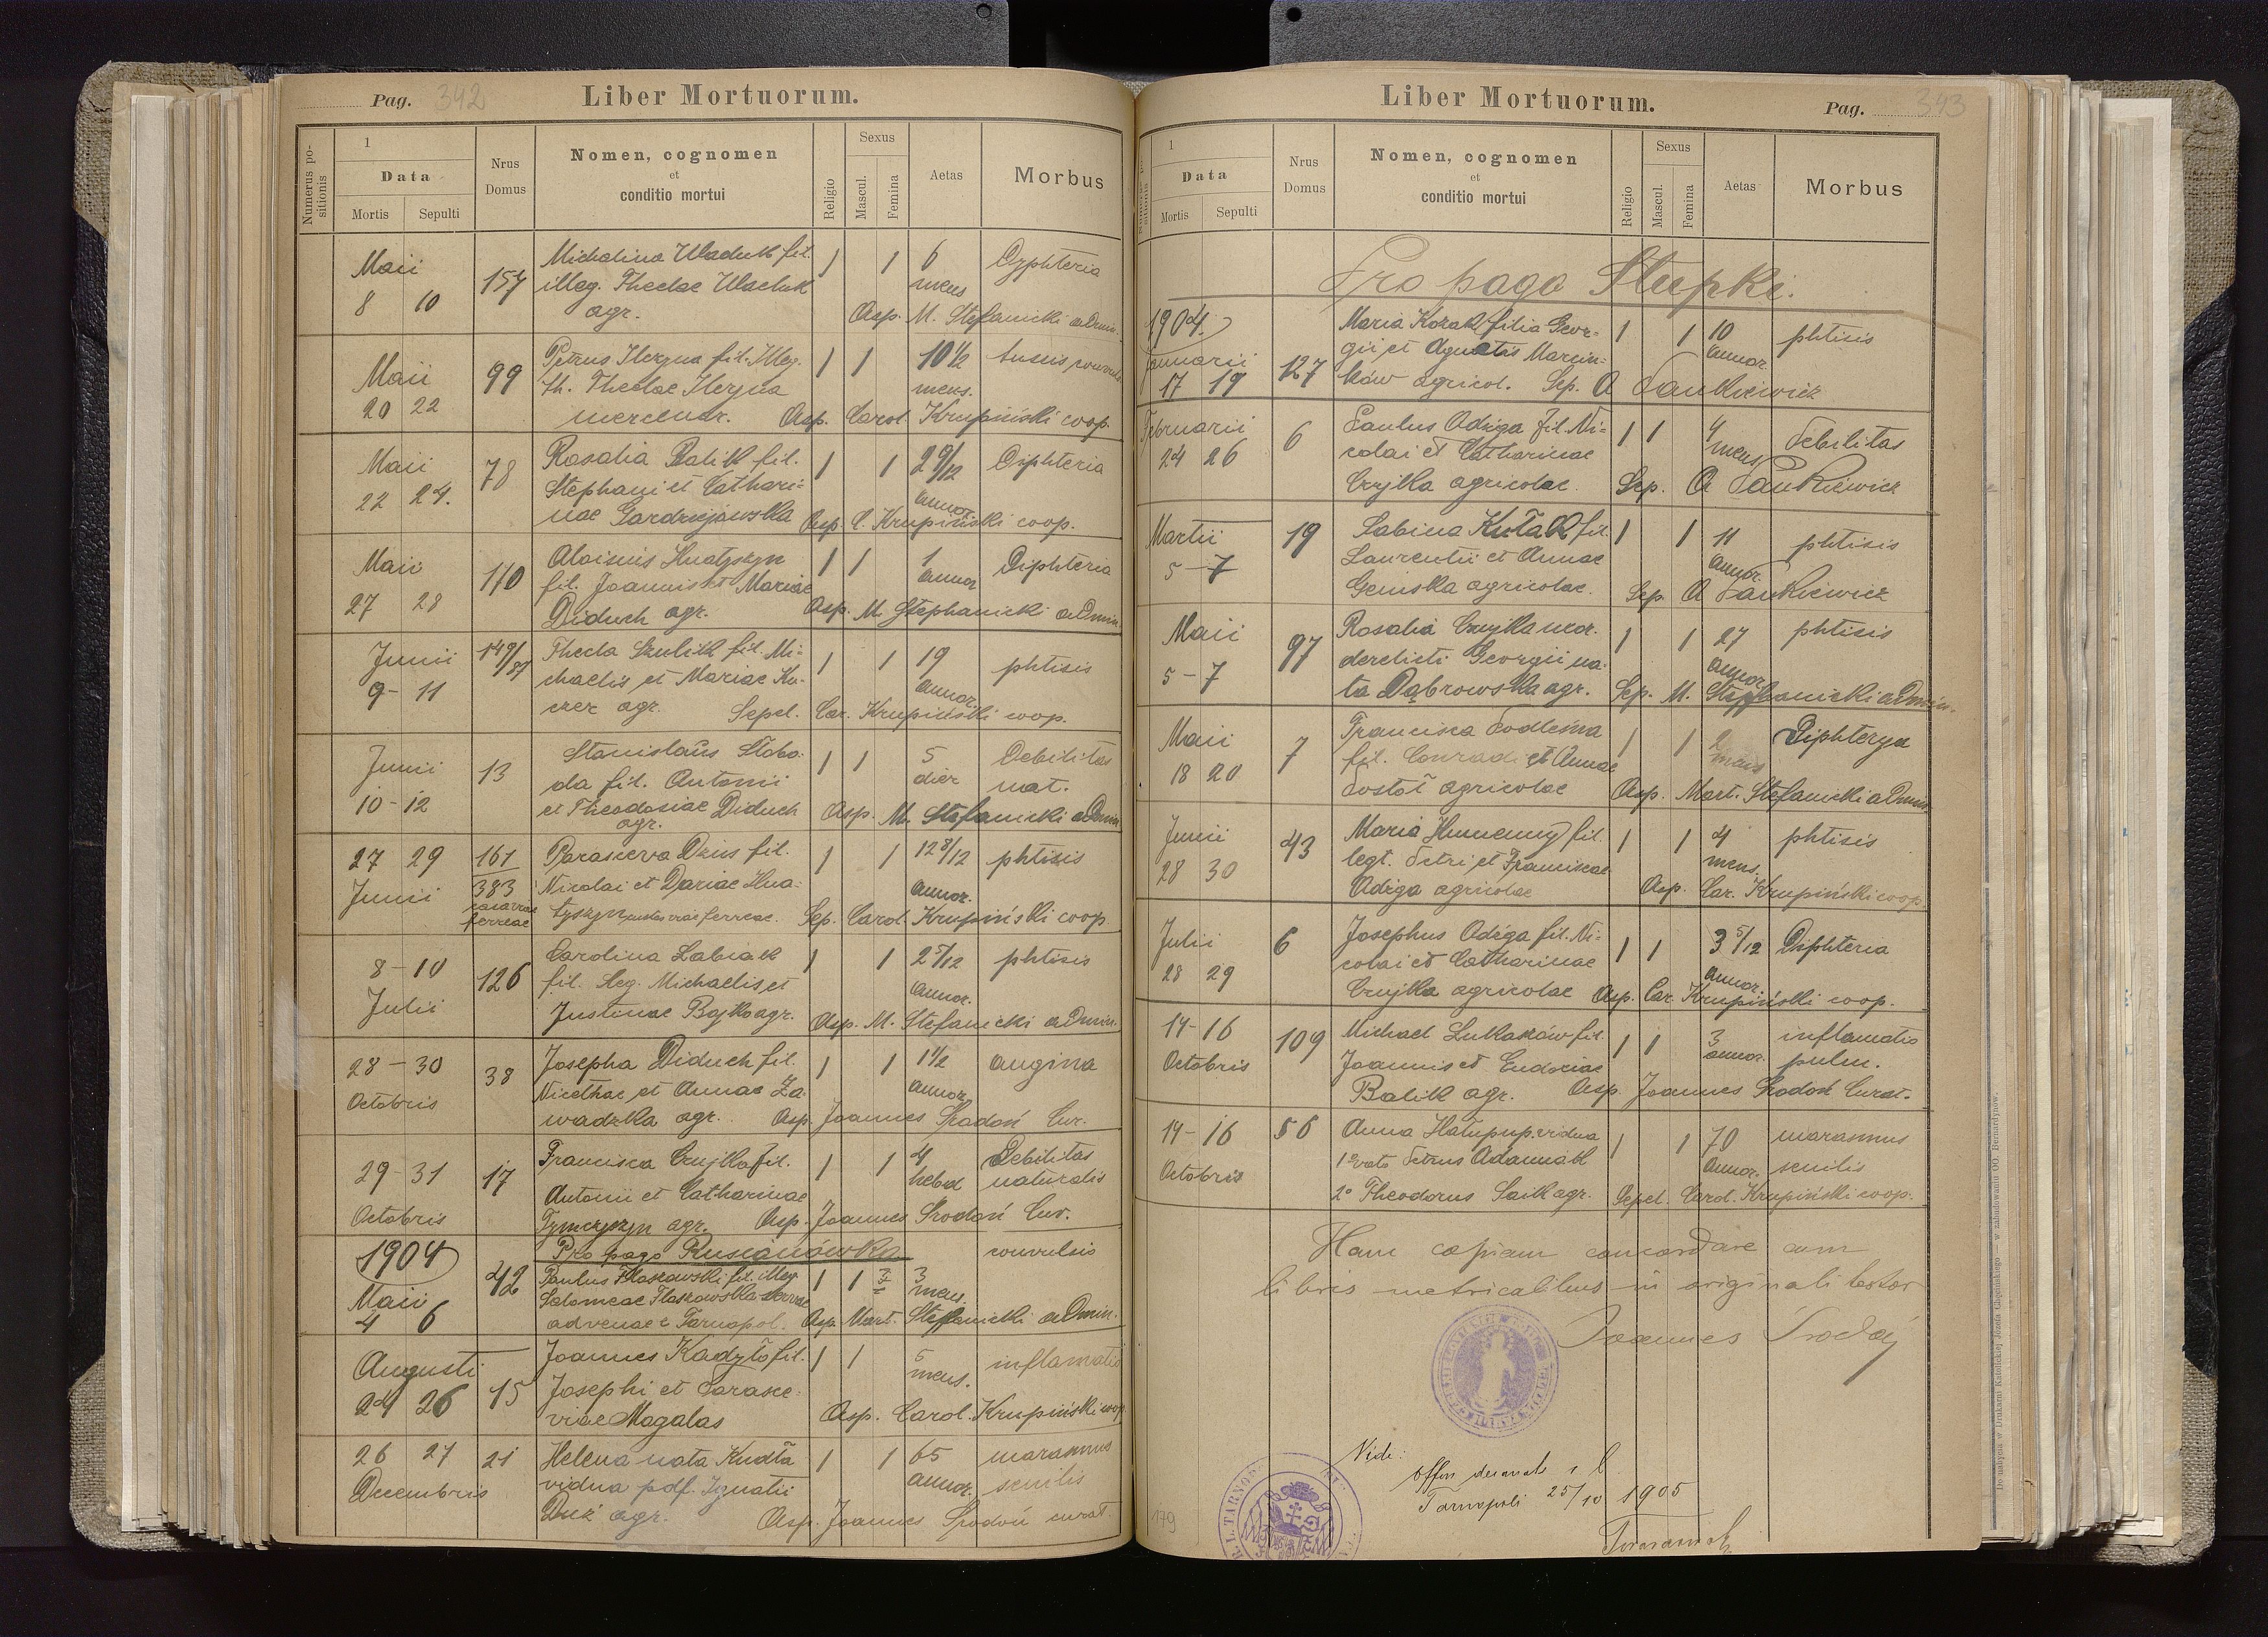 Pag. 342 Liber Mortuorum.
Numerus positionis
1
Data
Mortis Sepulti
Nrus Domus
Nomen, cognomen
et
conditio mortui
Religio
Sexus
Mascul. Femina
Aetas
Morbus
Maii 8 10 157 Michalina Wladuk fil. 1 1 6 mens Dyphteria
illeg. Theclae Wladuk
agr. Asp. M. Stefanicki admin.
Maii 20 22 99 Petrus Hezyna fil. illeg. 1 1 10 1/2 mens. tussis convuls
th. Theclae Hezyna
mercenar. Asp. Carol. Krupiński coop.
Maii 22 24. 78 Rosalia Balik fil. 1 1 2 9/12 annor. Diphteria
Stephani et Cathari=
nae Gardziejowska Asp. C. Krupiński coop.
Maii 27 28 170 Aloisius Hnatyszyn 1 1 1 annor Diphteria
fil. Joannis et Mariae
Diduch agr. Asp. M. Stephanicki admin.
Junii 9 - 11 149/87 Thecla Szulik fil. Mi- 1 1 19 annor. phtisis
chaelis et Mariae Ku-
czer agr. Sepel. Car. Krupiński coop.
Junii 10 - 12 13 Stanislaus Słobo- 1 1 5 dier Debilitas nat.
da fil. Antonii
et Theodosiae Diduch Asp. M. Stefanicki admin
agr.
27 29 Junii 161 383 casa viae ferreae Parasceva Dzius fil. 1 1 12 8/12 annor. phtisis
Nicolai et Dariae Hna-
tyszyn custos viae ferreae. Sep. Carol. Krupiński coop
8 - 10 Julii 126 Carolina Labiak 1 1 2 5/12 annor. phtisis
fil. leg. Michaelis et
Justinae Bojko agr. Asp. M. Stefanicki admin.
28 - 30 Octobris 38 Josepha Diduch fil. 1 1 1 1/2 annor angina
Nicethae et Annae Za-
wadzka agr. Asp. Joannes Środoń Cur.
29 - 31 Octobris 17 Francisca Czujka fil. 1 1 4 hebd Debilitas naturalis
Antonii et Catharinae
Tymczyszyn agr. Asp. Joannes Środoń Cur.
1904 Pro pago Rusianówka convulsis
Maii 4 6 42 Paulus Flaszowski fil. illeg. 1 1 3 mens.
Salomeae Flaszowska
advenae e Tarnopol. Asp. Mart. Stefanicki admin.
Augusti 24 26 15 Joannes Kadyło fil. 1 1 5 mens. inflamatio
Josephi et Parasce-
viae Magalas Asp. Carol. Krupiński coop
26 27 Decembris 21 Helena nata Kudła 1 1 65 annor. marasmus senilis
vidua pdf. Ignatii
Duż agr. Asp. Joannes Środoń curat.
Liber Mortuorum. Pag. 343
1
Data
Mortis Sepulti
Nrus Domus
Nomen, cognomen
et
conditio mortui
Religio
Sexus
Mascul. Femina
Aetas
Morbus
Pro pago Stupki.
1904. Januarii 17 19 127 Maria Kozak filia Geor= 1 1 10 annor. phtisis
gii et Agnetis Marcin=
ków agricol. Sep. A Pankiewicz
Februarii 24 26 6 Paulus Odyga fil. Ni= 1 1 4 mens Debilitas
colai et Catharinae
Czujka agricolae. Sep. A Pankiewicz
Martii 5 - 7 19 Sabina Kułak fil. 1 1 11 annor. phtisis
Laurentii et Annae
Gemska agricolae. Sep. A Pankiewicz
Maii 5 - 7 97 Rosalia Czujka uxor. 1 1 27 annor phtisis
derelicti Georgii na-
ta Dąbrowska agr. Sep. M. Stephanicki admin.
Maii 18 20 7 Francisca Podleśna 1 1 2 mens Diphterya
fil. Conradi et Annae
Postoł agricolae Asp. Mart. Stefanicki admin
Junii 28 30 43 Maria Humenny fil. 1 1 4 mens. phtisis
legt. Petri et Franciscae
Odiga agricolae Asp. Car. Krupiński coop.
Julii 28 29 6 Josephus Odiga fil. Ni= 1 1 3 5/12 annor. Diphteria
colai et Catharinae
Czujka agricolae Asp. Car. Krupiński coop.
14 - 16 Octobris 109 Michael Lukaszów fil. 1 1 3 annor. inflamatio pulm.
Joannis et Eudociae
Balik agr. Asp Joannes Środoń Curat.
14 - 16 Octobris 56 Anna Hałupup. vidua 1 1 70 annor. marasmus senilis
1º voto Petrus Adamiak
2º Theodorus Saik agr. Sepel. Carol. Krupiński coop.
Hanc copiam concordare cum
libris metricalibus in originali testor
Joannes Środoń
Vidi:
Tarnopoli 25/10 1905
179